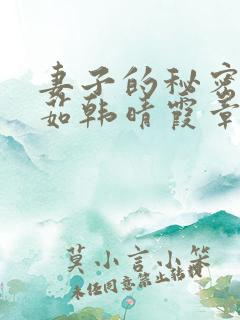 妻子的秘密
茹韩晴霞章
莫小言小笨
未经同意禁止转载